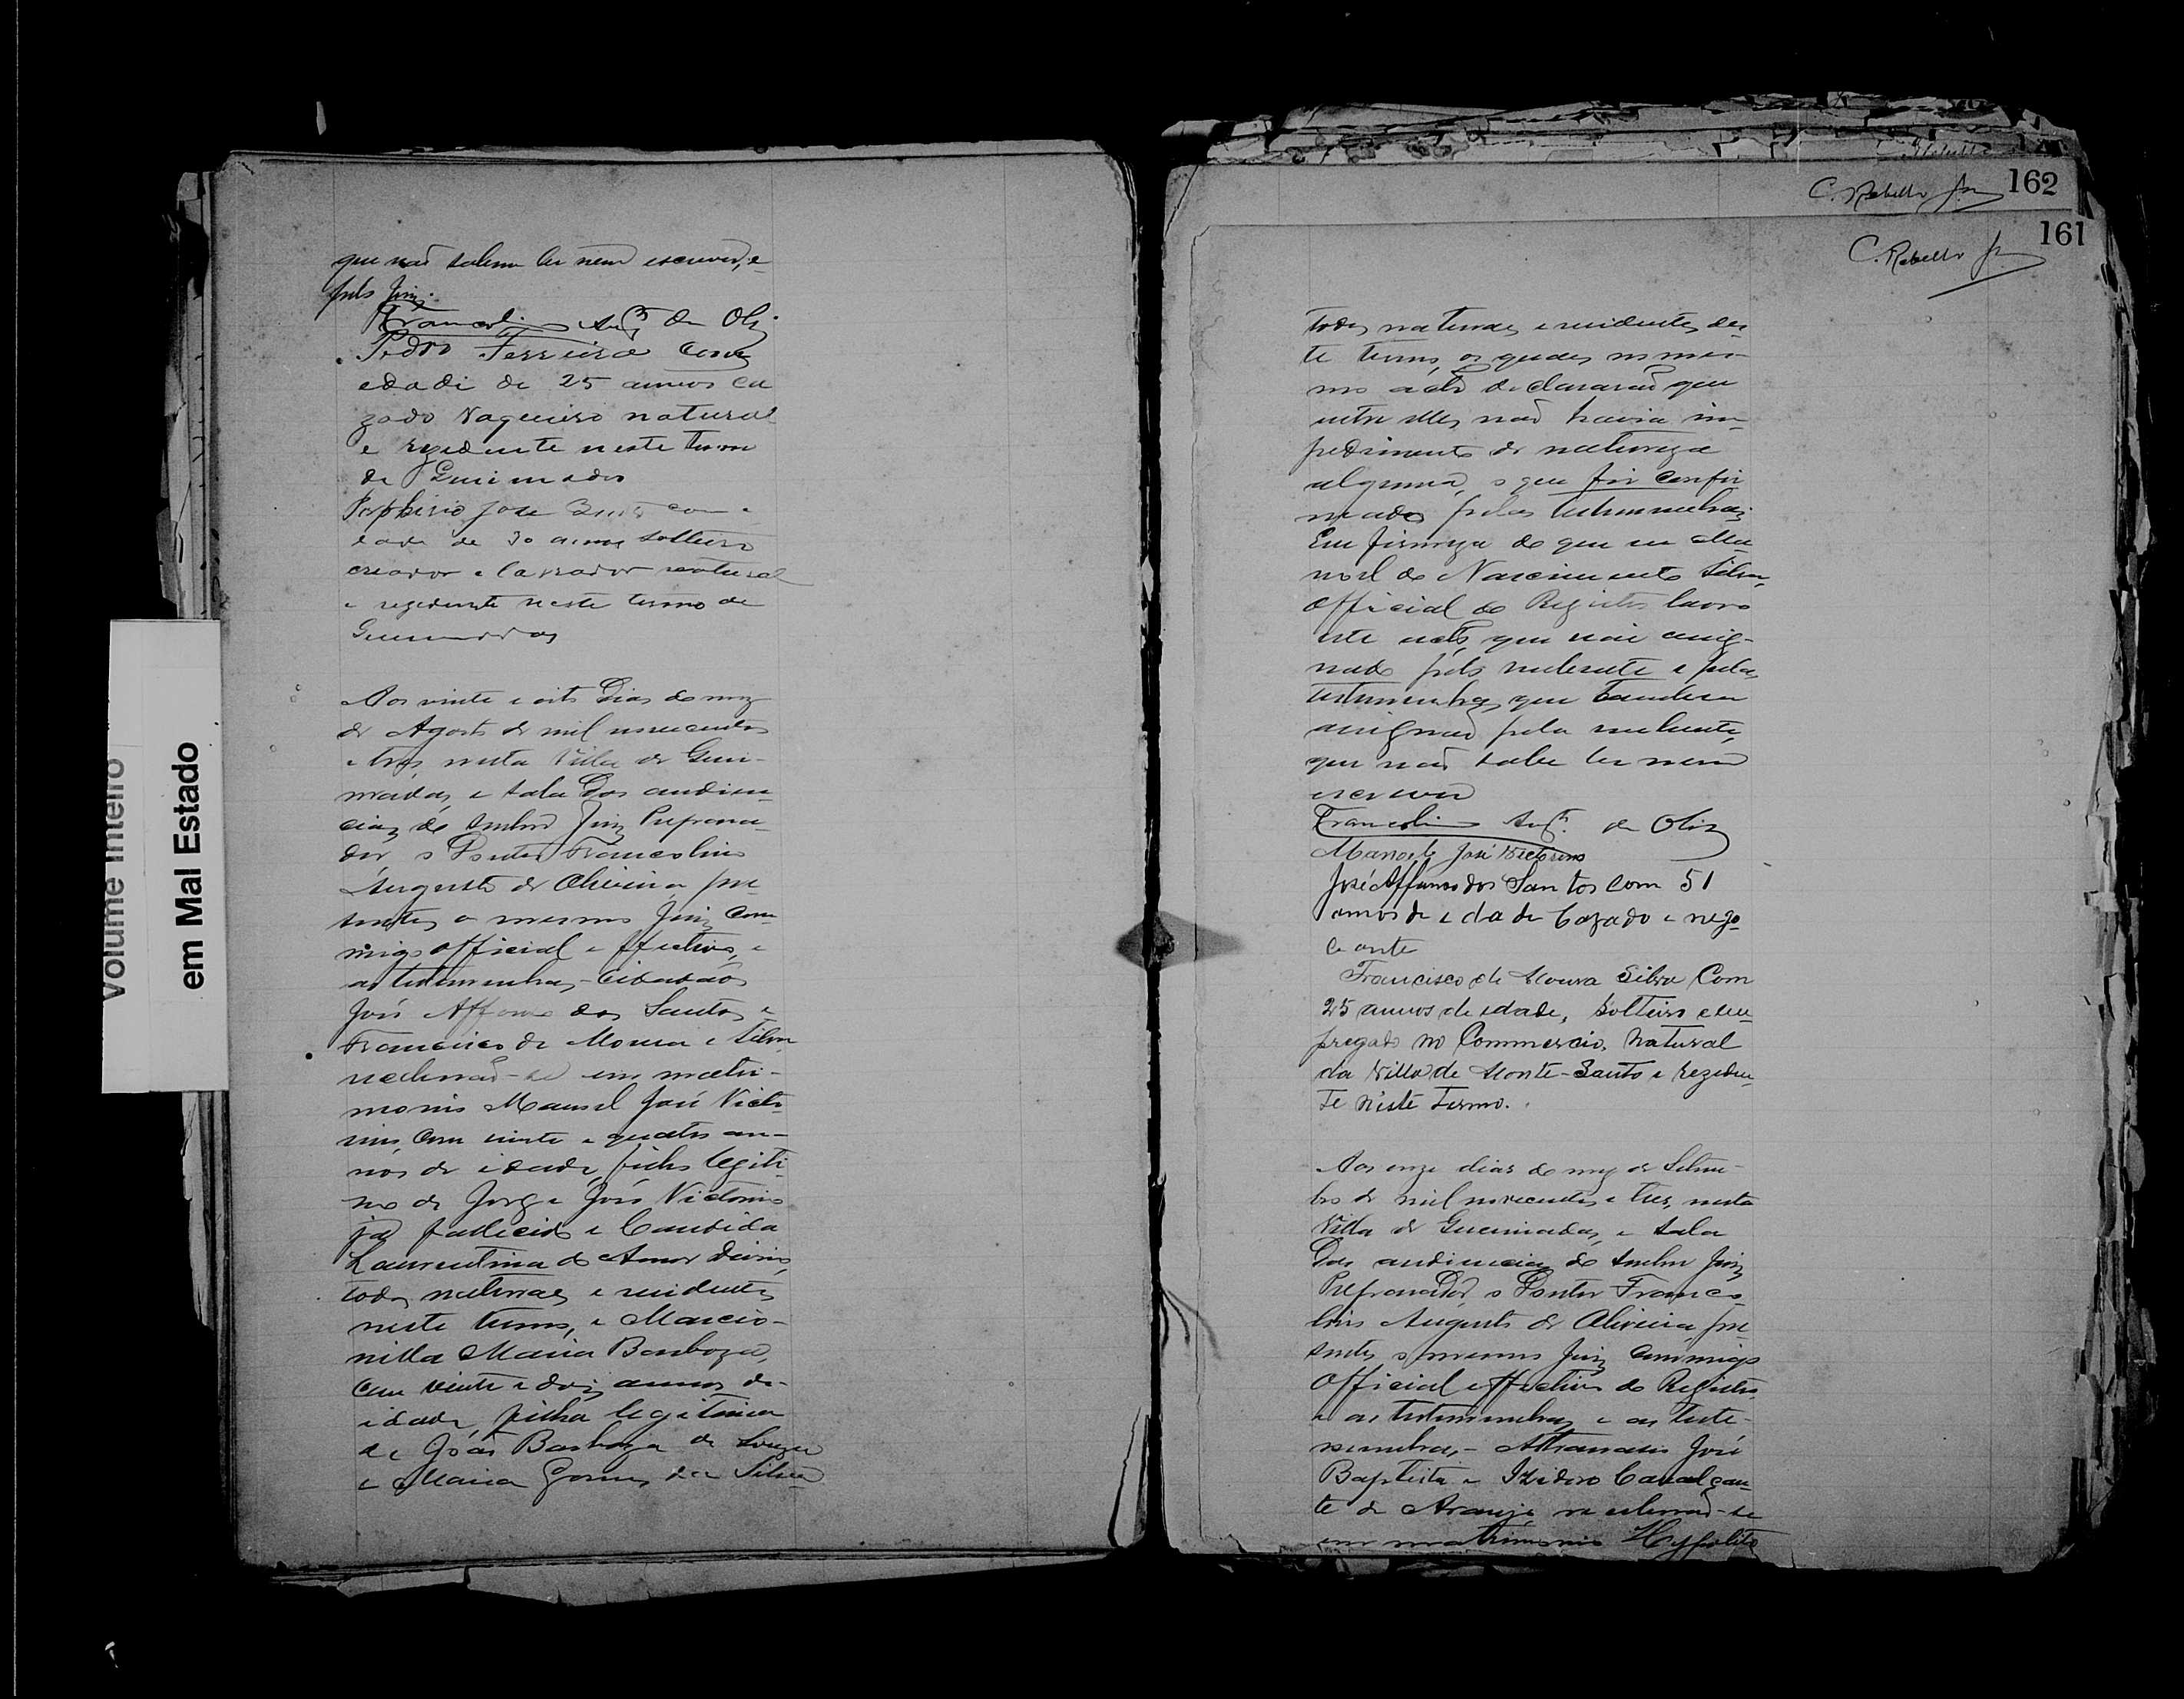 Volume Inteiro
em Mal Estado
que não sabem ler nem escrever, e
pelo Juiz.
Francolino Aug.to de Oliv.
Pedro Ferreira com
edade de 25 annos ca
zado Vaqueiro natural
e rezidente neste termo
de Queimadas
Porphirio José com a
eade de 30 annos solteiro
creador e lavrador natural
e rezidente neste termo de
Queimadas
Aos vinte e oito dias do mez
de Agosto de mil novecentos
e tres, nesta Villa de Quei-
madas, e sala das audien-
cias do Senhor Juiz Prepara-
dor o Doutor Francolino
Augusto de Oliveira, pre-
sentes o mesmo Juiz com-
migo official effectivo, e
as testemunhas, - Cidadãos
José Affonso dos Santos e
Francisco de Moura e Silva
receberão-se em matri-
monio Manoel José Victo-
rino, com vinte e quatro an-
nos de idade, filho legiti-
mo de Jorge José Victorino
já fallecido e Candida
Laurentina do Amor Divino,
todos naturaes e residentes
neste termo, e Marcio-
nilla Maria Barboza,
com vinte e dois annos de
idade, filha legitima
de João Barboza de Souza
e Maria Gomes da Silva
162
C. Rebello Jr
161
C. Rebello Jr
todos naturaes e residentes des-
te termo, os quaes no mes-
mo acto declararão que
entre elles não havia im-
pedimento de natureza
alguma, o que foi confir
mado pelas testemunhas.
Em firmeza do que eu Ma-
noel do Nascimento Silva,
Official do Registro lavro
este acto, que vai assig-
nado pelo nubente e pelas
testemunhas, que tambem
assignão pela nubente,
que não sabe ler nem
escrever
Francolino Aug.to de Oliv
Manoele José Victorino
José Affonso dos Santos com 51
annos de edade Cazado e nego-
ceante
Francisco de Moura Silva Com
25 annos de edade, Solteiro e em-
pregado no Commercio, Natural
da Villa de Monte-Santo e reziden-
te n'este termo.
Aos onze dias do mez de Setem-
bro de mil novecentos e tres, nesta
Villa de Queimadas, e sala
das audiencias do Senhor Juiz
Preparador, o Doutor Franco-
lino Augusto de Oliveira, pre-
sentes o mesmo Juiz commigo
Official effectivo do Registro
e as testemunhas e as teste-
munhas, - Athanasio José
Baptista e Izidoro Cavalcan-
te de Araujo receberão-se
em matrimonio Hyppolito